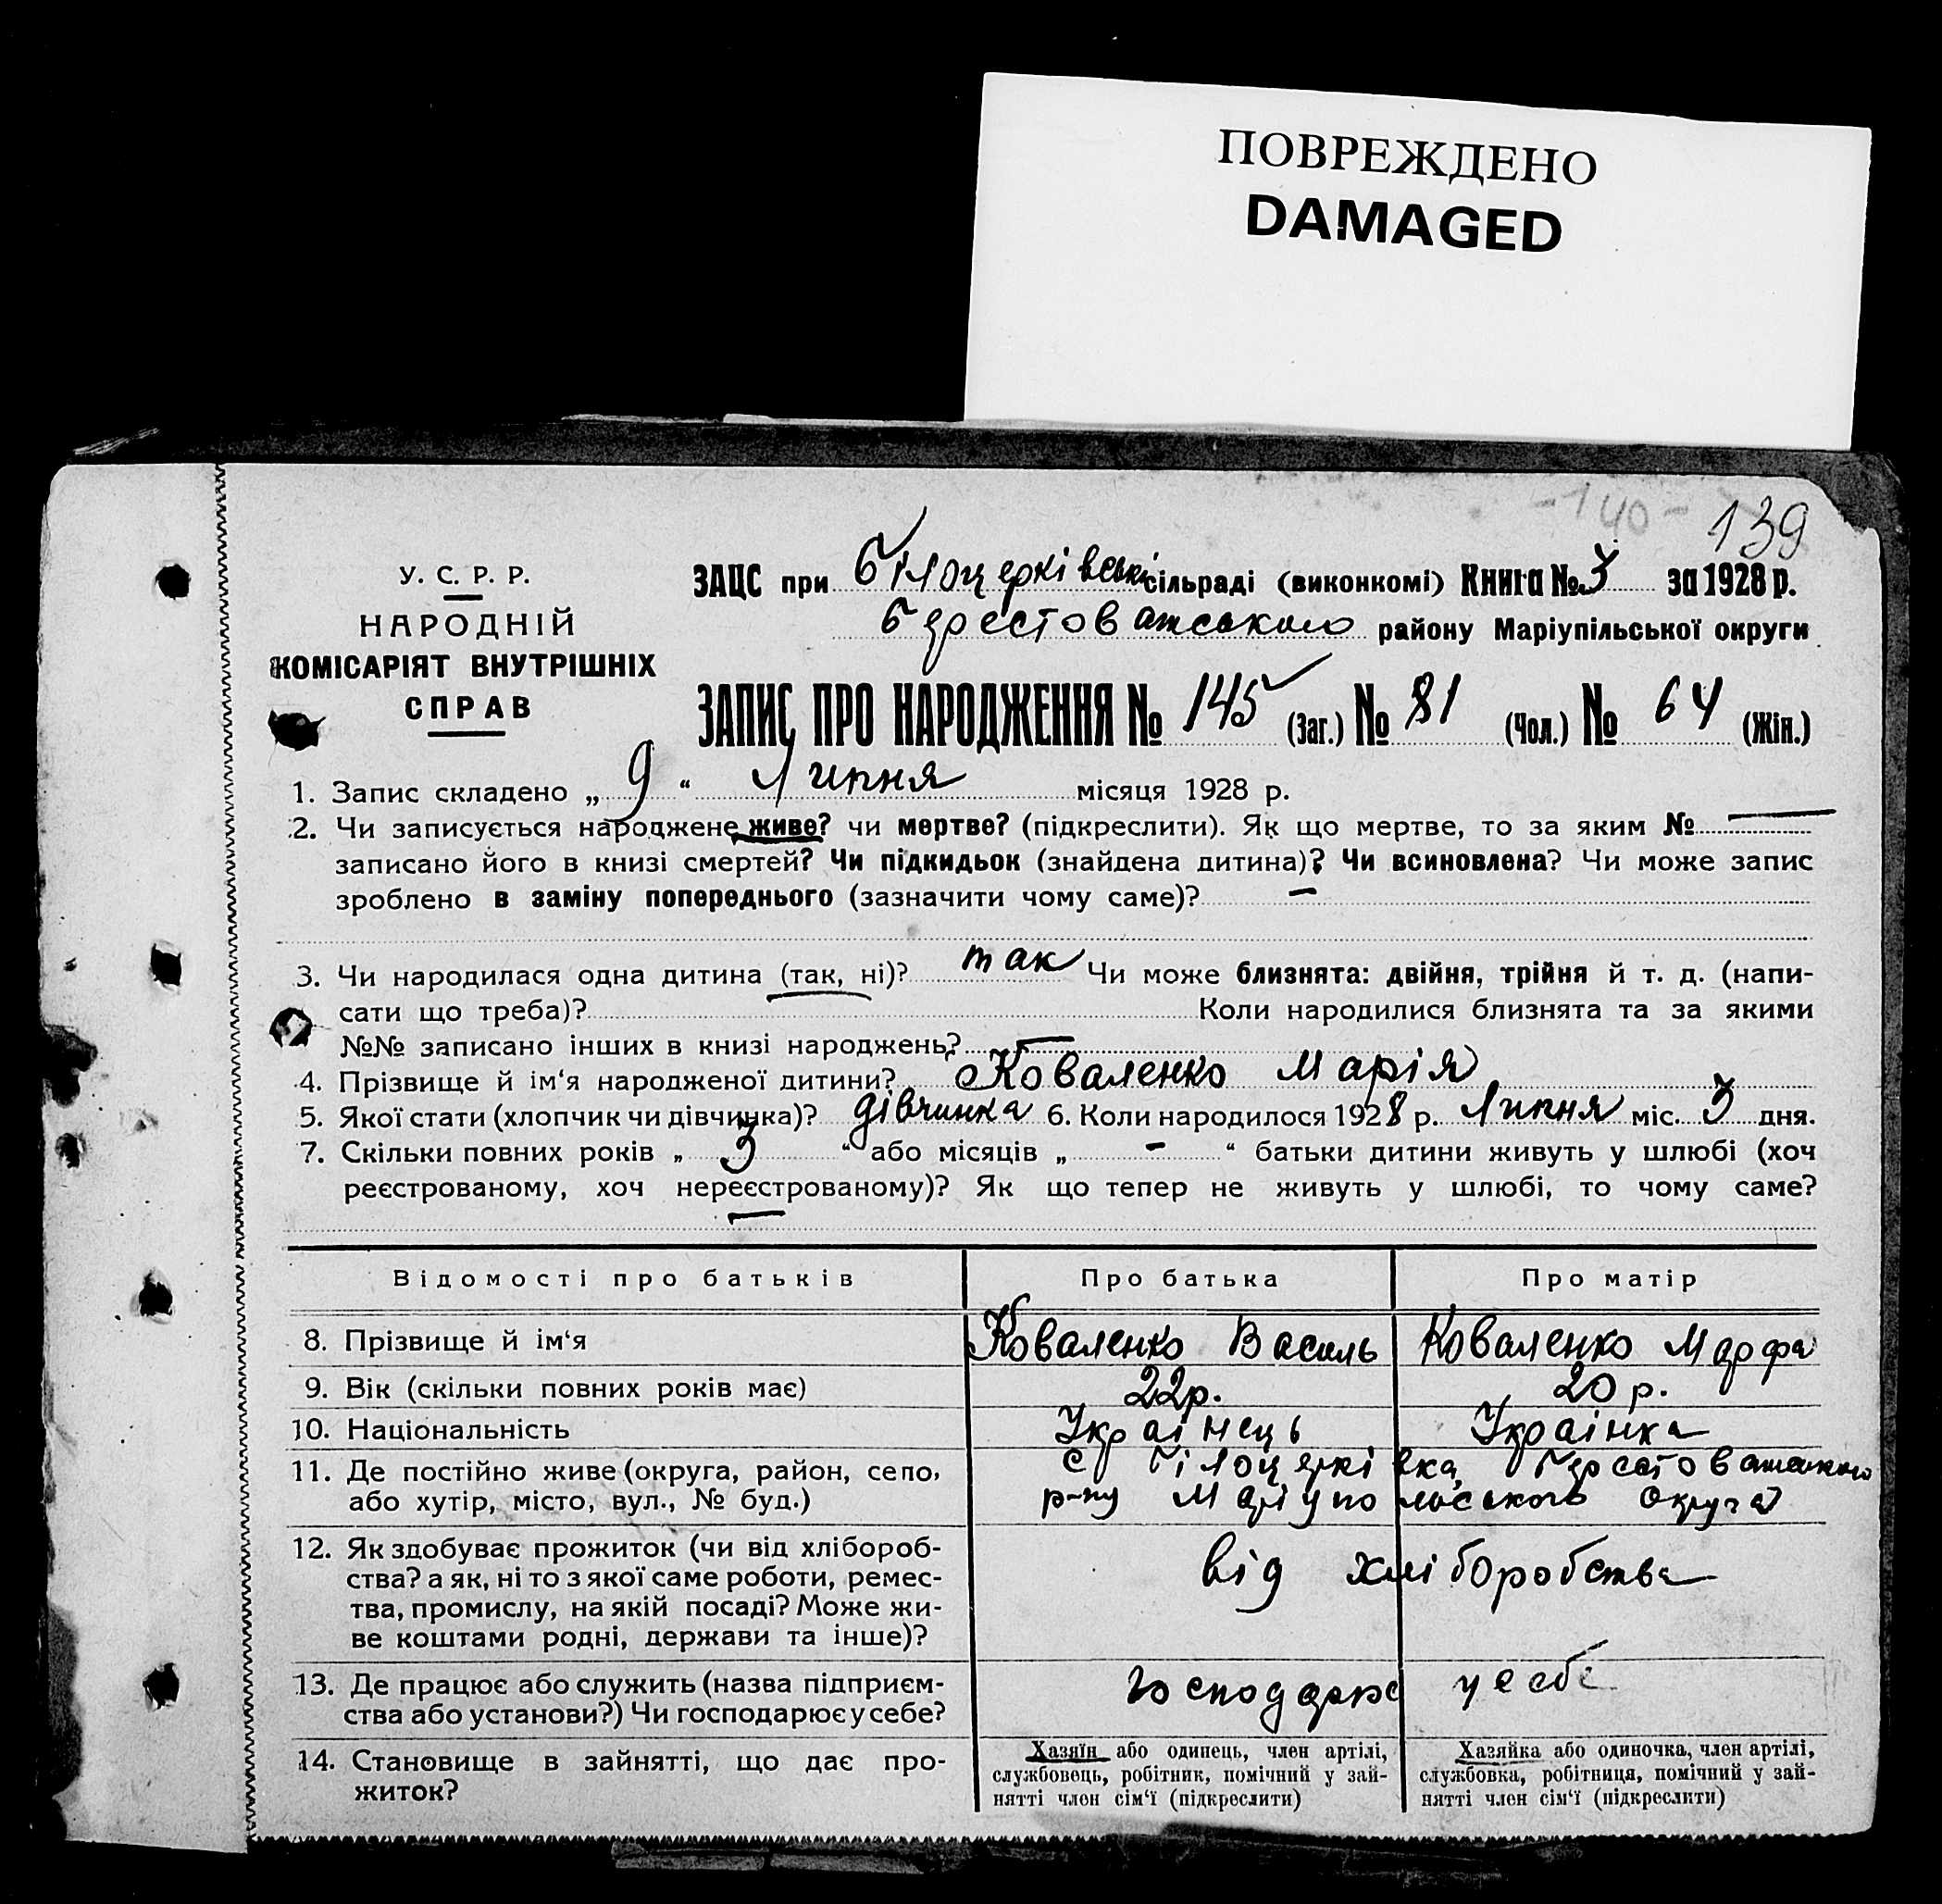 ПОВРЕЖДЕНО
DAMAGED
-140-
139
У. С. Р. Р.
НАРОДНІЙ
КОМІСАРІЯТ ВНУТРІШНІХ
СПРАВ
ЗАЦС при Білоцерківські сільраді (виконкомі) Книга № 3 за 1928 р.
Берестоватського району Маріупільської округи
ЗАПИС ПРО НАРОДЖЕННЯ № 145 (Заг.) № 81 (Чол.) № 64 (Жін.)
1. Запис складено „ 9 “ Липня місяця 1928 р.
2. Чи записується народжене живе? чи мертве? (підкреслити). Як що мертве, то за яким № —
записано його в книзі смертей? Чи підкидьок (знайдена дитина)? Чи всиновлена? Чи може запис
зроблено в заміну попереднього (зазначити чому саме)? —
3. Чи народилася одна дитина (так, ні)? так Чи може близнята: двійня, трійня й т. д. (напи-
сати що треба)? Коли народилися близнята та за якими
№№ записано інших в книзі народжень? —
4. Прізвище й ім‘я народженої дитини? Коваленко Марія
5. Якої стати (хлопчик чи дівчинка)? дівчинка 6. Коли народилось 1928 р. Липня міс. 3 дня.
7. Скільки повних років „ 3 “ або місяців „ - “ батьки дитини живуть у шлюбі (хоч
реєстрованому, хоч нереєстрованому)? Як що тепер не живуть у шлюбі, то чому саме?
—
Відомості про батьків Про батька Про матір
8. Прізвище й ім‘я Коваленко Василь Коваленко Марфа
9. Вік (скільки повних років має) 22 р. 20 р.
10. Національність Українець Українка
11. Де постійно живе (округа, район, село, с Білоцерківка, Берестоватського
або хутір, місто, вул., № буд.) р-ну Маріупольського округа
12. Як здобуває прожиток (чи від хлібороб-
ства? а як, ні то з якої саме роботи, ремес- від хліборобства
тва, промислу, на якій посаді? Може жи-
ве коштами родні, держави та інше)?
13. Де працює або служить (назва підприєм- господарює у себе
ства або установи?) Чи господарює у себе?
14. Становище в зайнятті, що дає про-
житок?
Хазяїн або одинець, член артілі,
службовець, робітник, помічний у зай-
нятті член сім‘ї (підкреслити)
Хазяйка або одиночка, член артілі,
службовка, робітниця, помічний у зай-
нятті член сім‘ї (підкреслити)